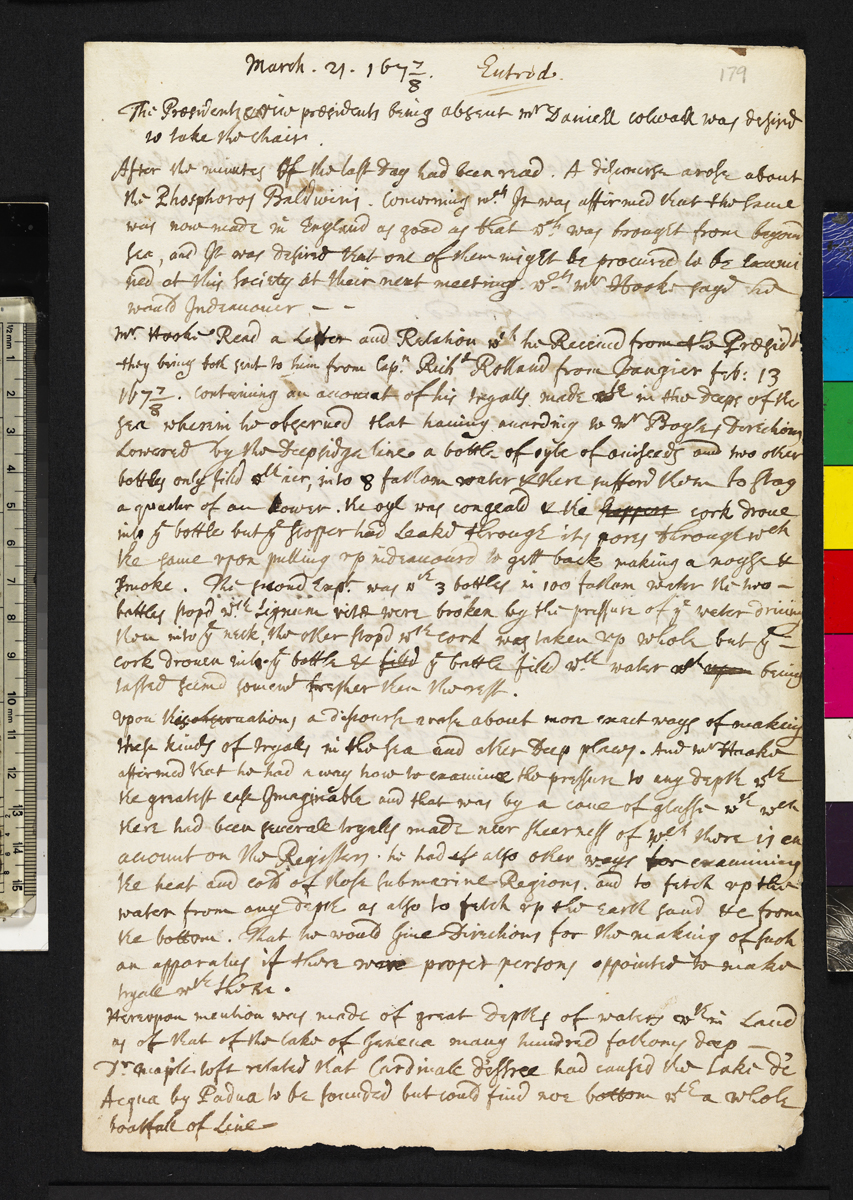 March. 21. 167 7/8. Entred. 179
The Præsident & vice præsidents being absent Mr Daniell colwall was desired
to take the chair.
After the minutes Of the last day had been read. A discourse arose about
the Phosphoros Baldwini. Concerning wch It was affirmed that the same
was now made in England as good as that wch was brought from beyond
sea, and It was desired that one of them might be procured to be Exami
ned at this society at their next meeting. wch Mr Hooke sayd he
would Indeauour - -
Mr. Hooke Read a Letter and Relation wch he Receiud from the Præsidt.
they being both sent to him from Capn Richd Rolland from Tangier feb: 13
167 7/8. Containing an account of his tryalls made in the deeps of the
sea wherein he obserued that hauing according to Mr Boyles Directions
Lowered by the Deepsidge line a bottle of oyle of aniseeds and two other
bottles only filld wth aer, into 8 fatham water & there sufferd them to stay
a quarter of an hower. the oyl was congeald & the stoppers cork droue
into ye bottle but ye stopper had Leakd through its pores through wch
the same upon pulling up indeauourd to gett back making a noyse &
smoke. The second Expt. was wth 3 bottles in 100 fatham water the two -
bottles stopd wth Lignum vitæ were broken by the pressure of ye water driuing
them into ye neck, the other stopd wth cork was taken up whole but ye -
cork drouen into ye bottle & filld ye bottle filld wth water wch upon being
tasted seemd somewt fresher then the rest.
upon these obseruations a discourse arose about more exact ways of making
these kinds of tryalls in the sea and other Deep places. And Mr Hooke
affirmed that he had a way how to examine the pressure to any depth wth
the greatest ease Imaginable and that was by a cane of glasse wth wch
there had been seuerall tryalls made neer sheerness of wch there is an
account on the Registers. he had also other ways for examining
the heat and cold of those submarine Regions. and to fetch up the
water from any depth as also to fetch up the Earth sand &c from
the bottom. That he would giue Directions for the making of such
an apparatus if there were proper persons appointed to make
tryall wth them.
Hereupon mention was made of great depths of waters wthin Land
as of that of the lake of Geneua many hundred fathoms deep -
Dr. mapletoft related that Cardinall d'estree had caused the Lake de
Acqua by Padua to be sounded but could find noe bottom wth a whole
boatfull of Line -